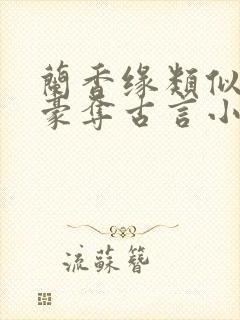 蘭香缘類似
豪奪古言小
流蘇簪